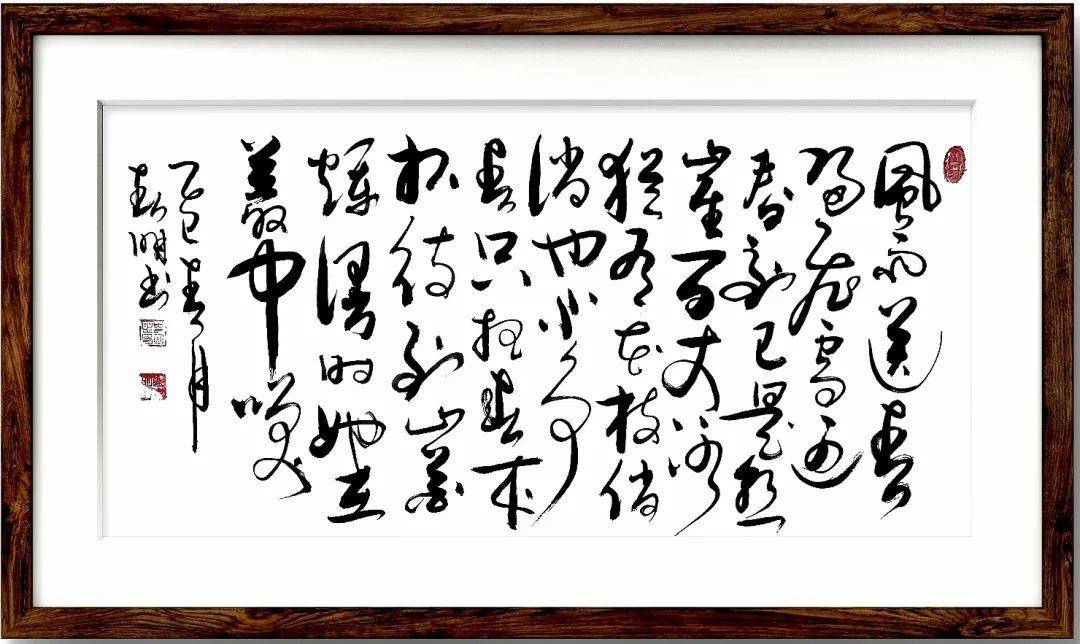 風雨送春
歸飛雪迎
春到已是懸
崖百丈冰
猶有花枝俏
俏也不爭
春只把春來
報待到山花
爛漫時她在
叢中笑
乙巳春月
春明书